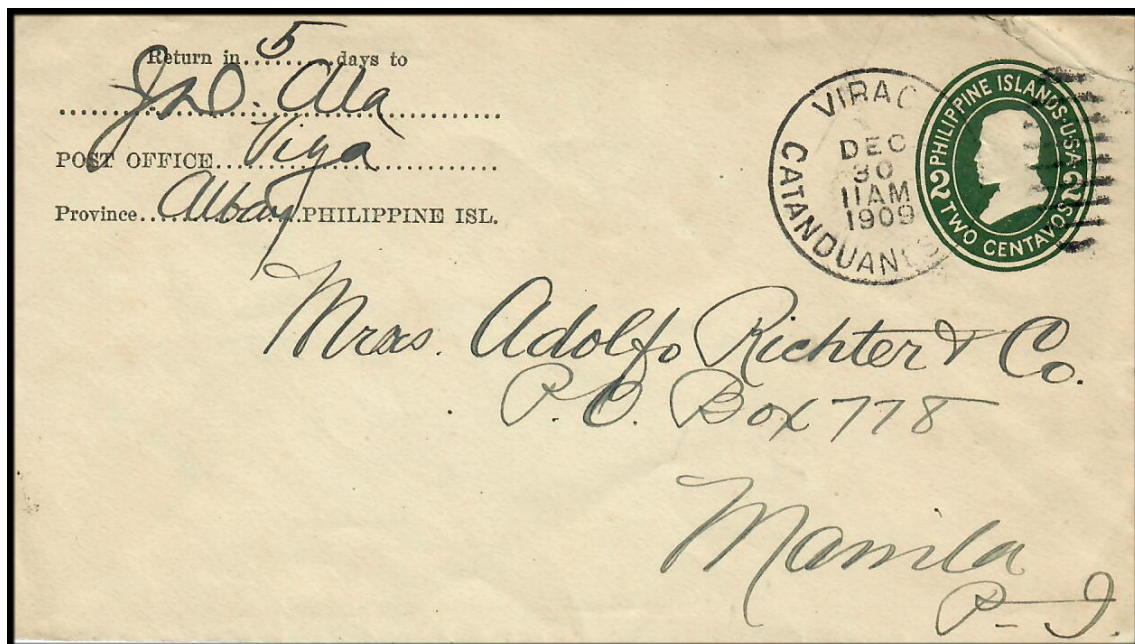 Return in 5 days to
Jno. Alla
POST OFFICE Viga
Province Albay PHILIPPINE ISL.
VIRAC
DEC
30
11AM
1909
CATANDUANES
PHILIPPINE ISLANDS·U·S·A·
2 2
TWO CENTAVOS
Mrss. Adolfo Richter & Co.
P.O. Box 778
Manila
P-I.